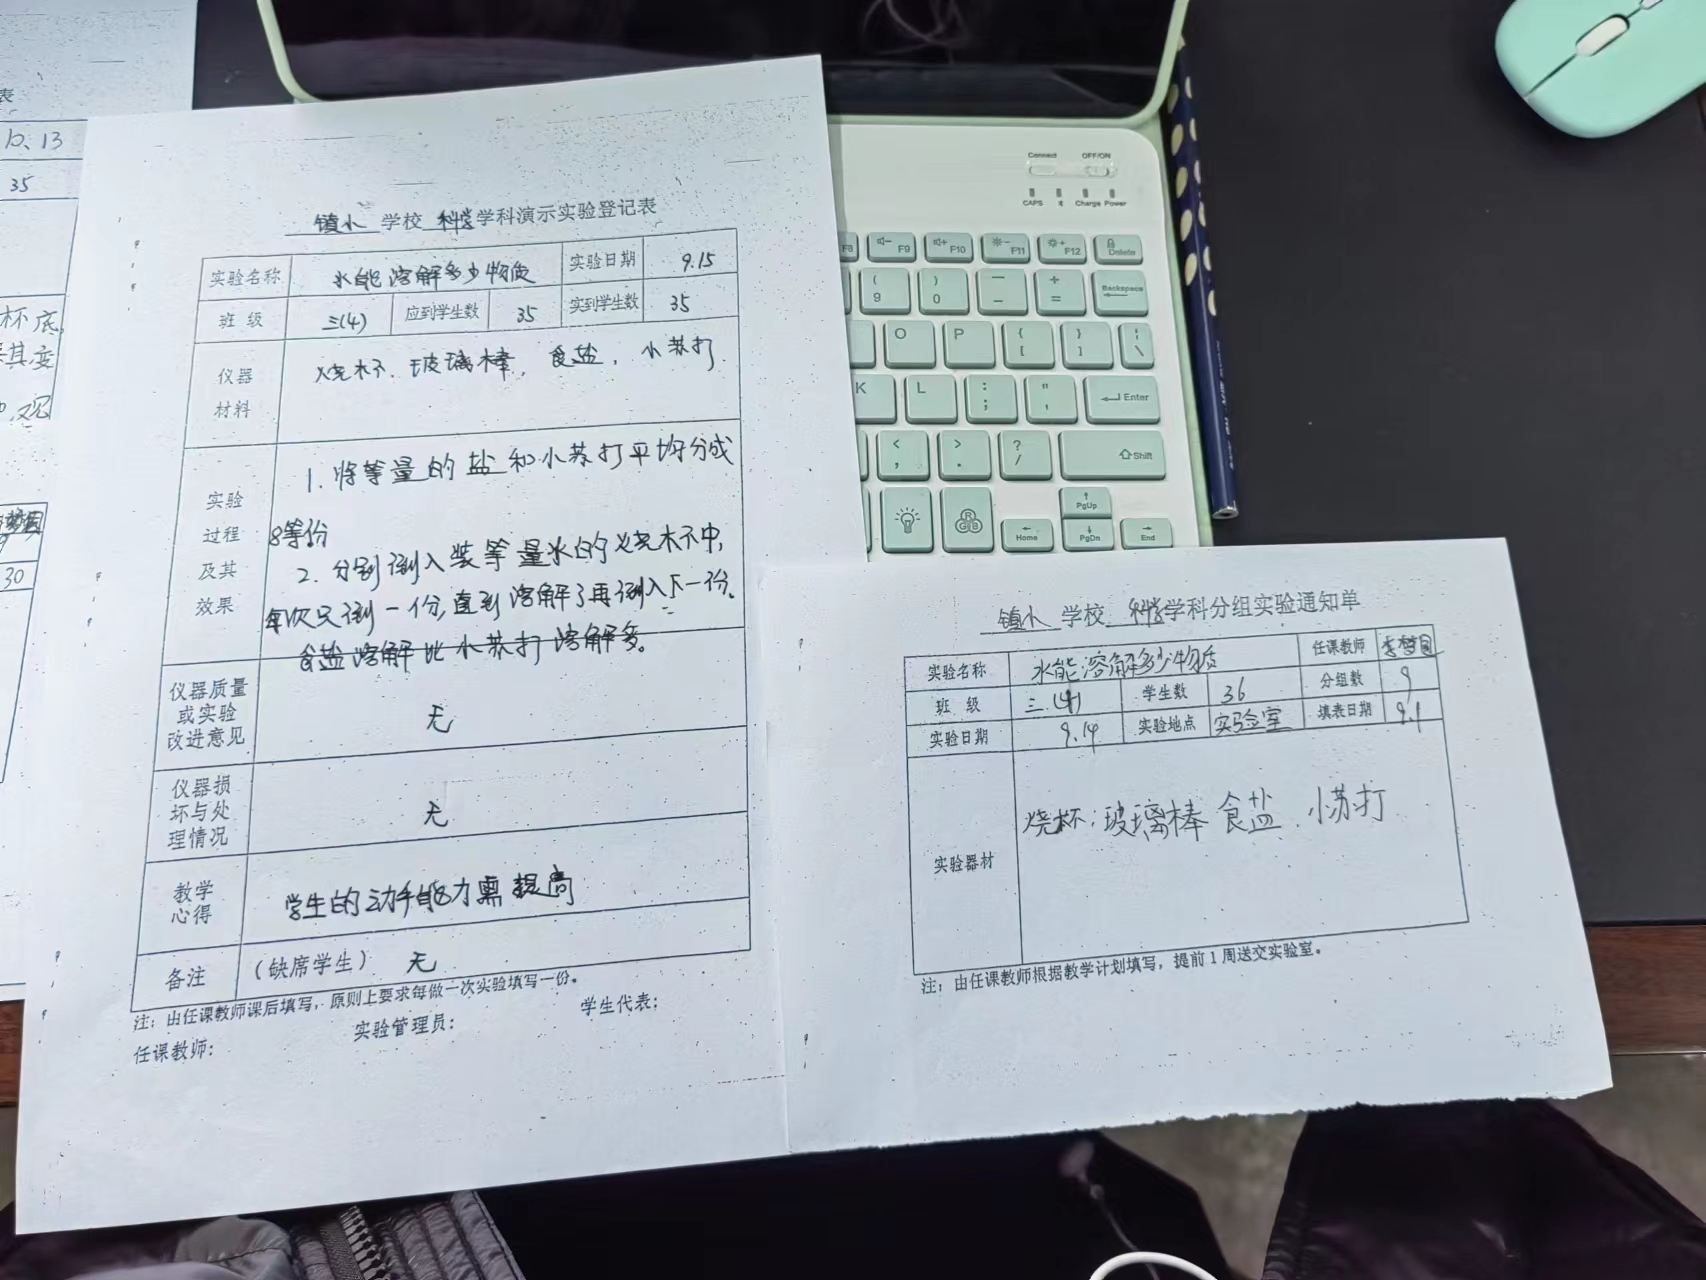 表
10.13
35
杯底,
其变
观
30
镇小 学校 科学学科演示实验登记表
实验名称 水能溶解多少物质 实验日期 9.15
班 级 三(4) 应到学生数 35 实到学生数 35
仪器材料 烧杯、玻璃棒, 食盐, 小苏打
实验过程及其效果
1. 将等量的盐和小苏打平均分成
8等份
2. 分别倒入装等量水的烧杯中,
每次只倒一份,直到溶解了再倒入下一份。
食盐溶解比小苏打溶解多。
仪器质量或实验改进意见 无
仪器损坏与处理情况 无
教学心得 学生的动手能力需提高
备注 (缺席学生) 无
注:由任课教师课后填写,原则上要求每做一次实验填写一份。
任课教师: 实验管理员: 学生代表:
镇小 学校 科学学科分组实验通知单
实验名称 水能溶解多少物质 任课教师
班 级 三.(4) 学生数 36 分组数 9
实验日期 9.14 实验地点 实验室 填表日期 9.1
实验器材 烧杯; 玻璃棒 食盐. 小苏打
注:由任课教师根据教学计划填写,提前1周送交实验室。
Connect OFF/ON
CAPS Charge Power
F8 F9 F10 F11 F12 Delete
( 9 ) 0 — - + = Backspace
O P { [ } ] ¦ \
K L : ; " ' Enter
< , > . ? / Shift
R G B PgUp
Home PgDn End